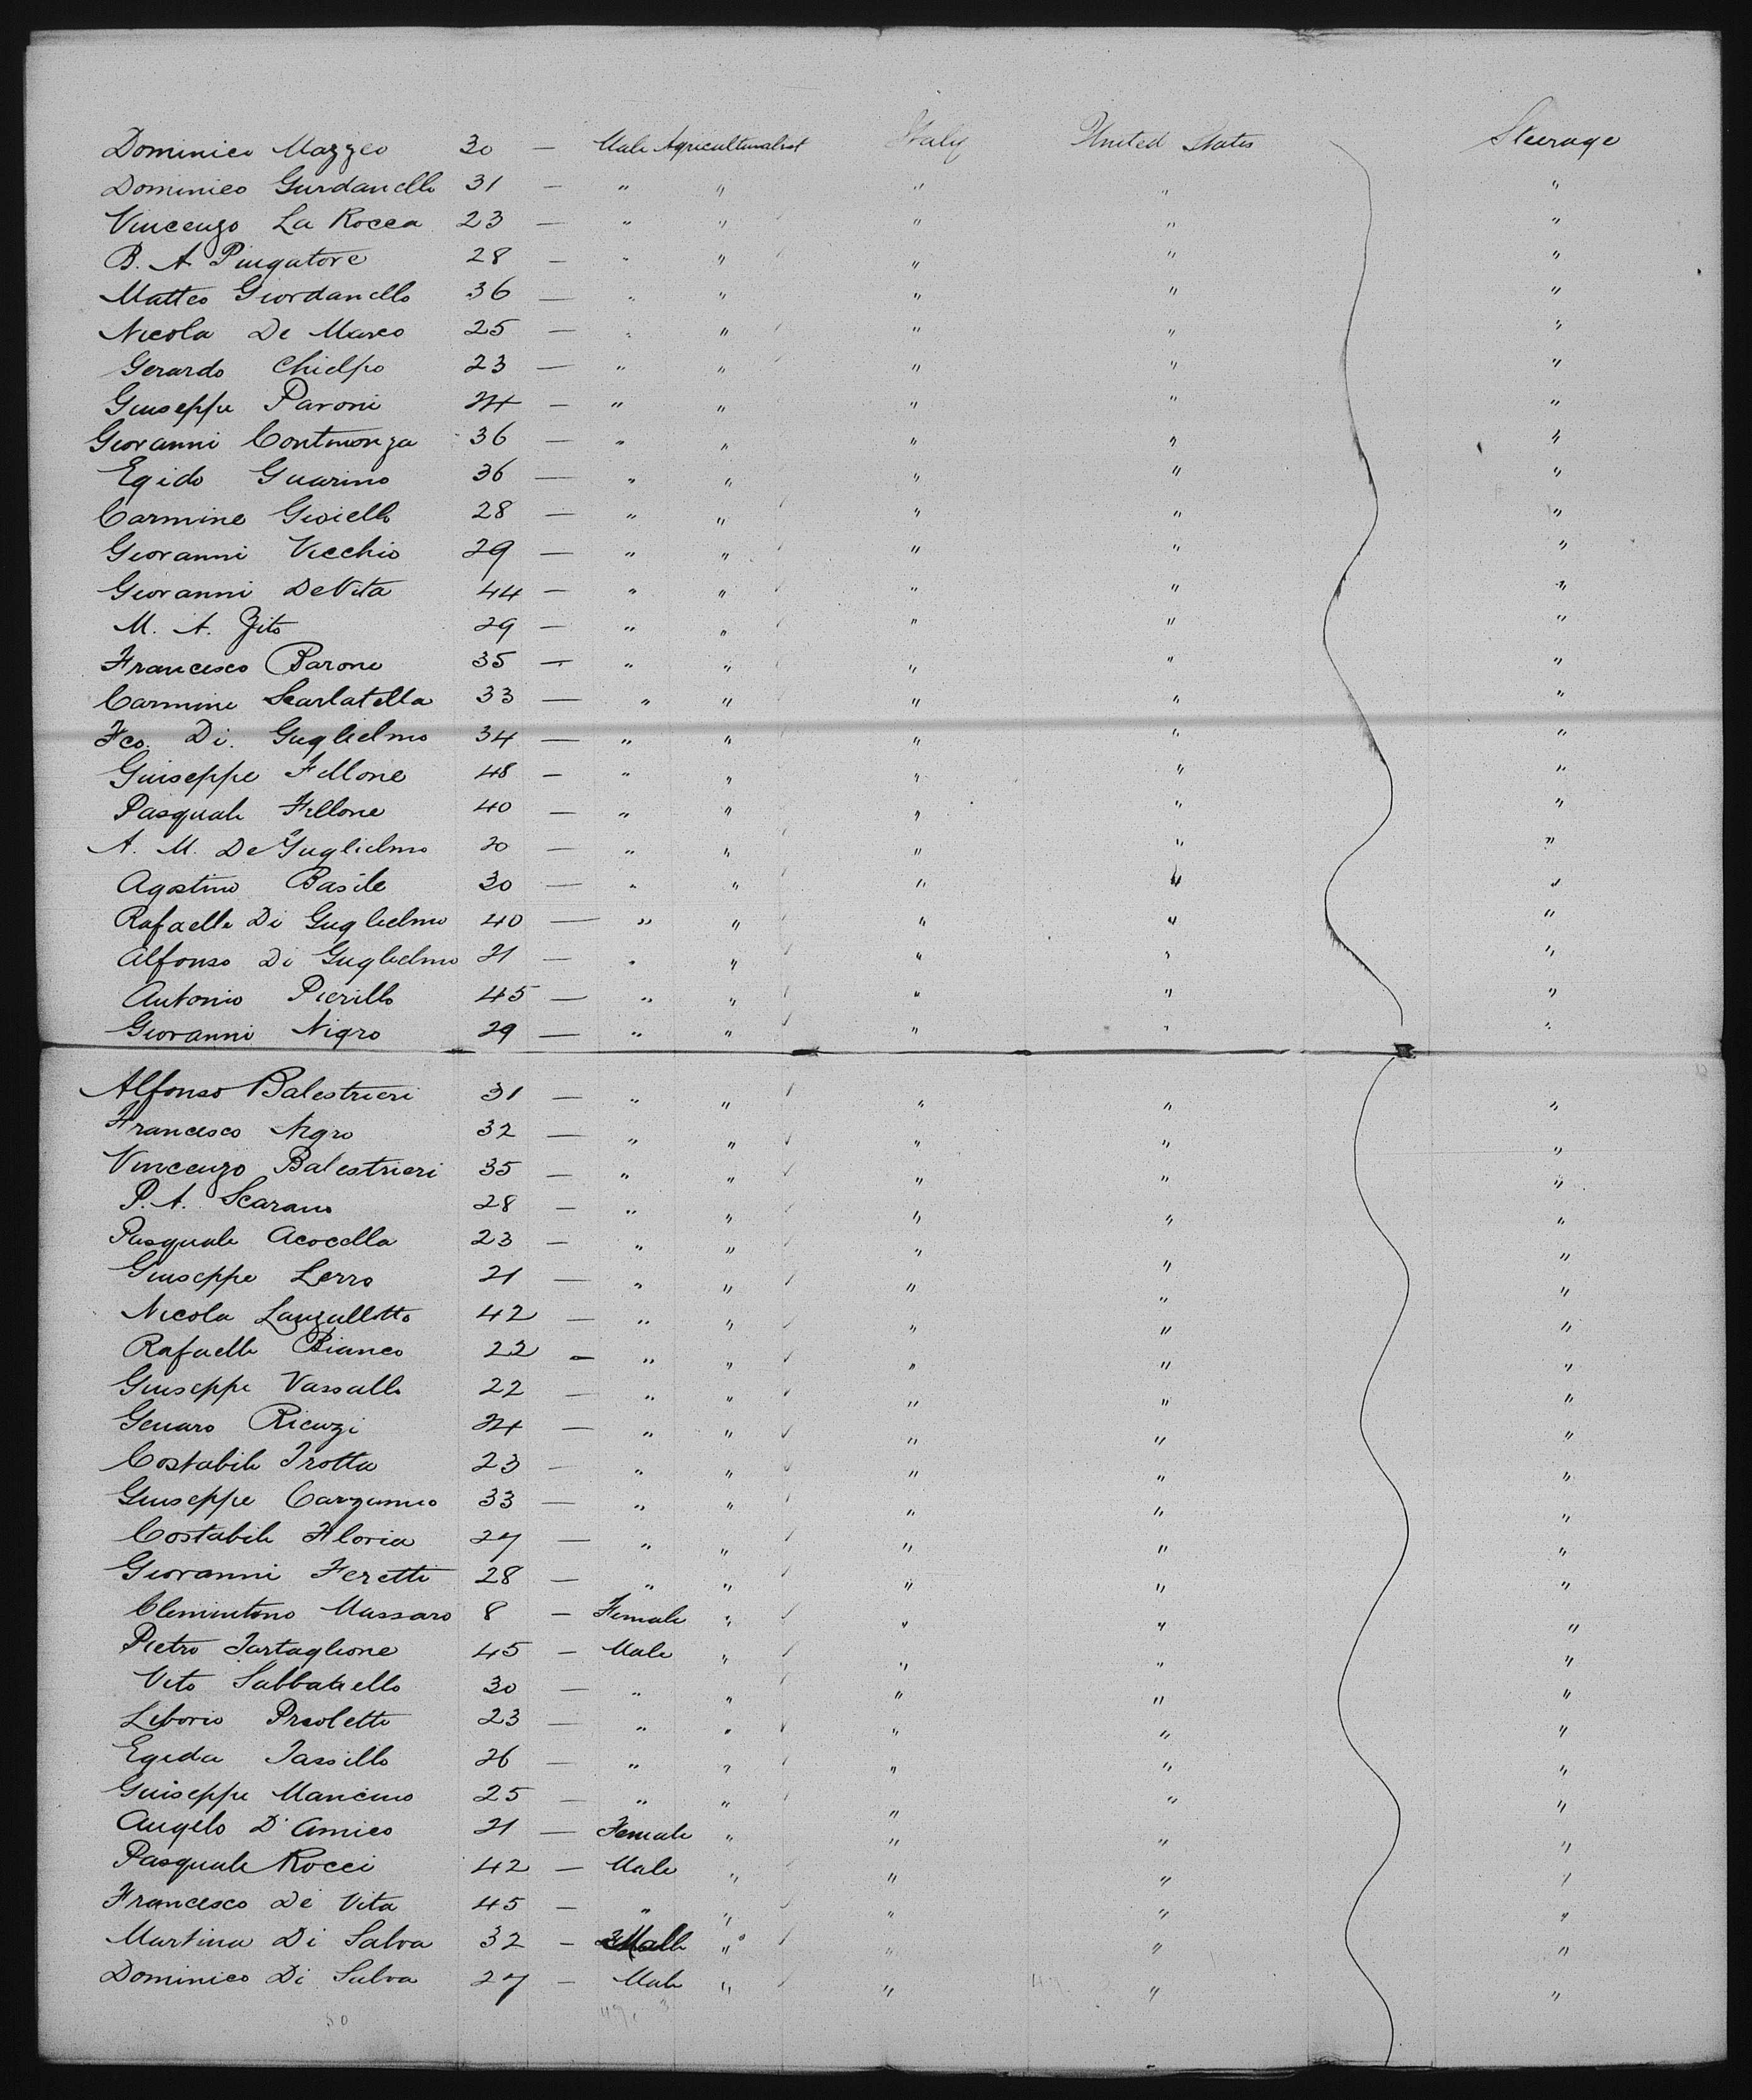 Dominico Mazzeo 30 — Male Agriculturalist Italy United States Steerage
Dominico Gurdanello 31 — " " " " "
Vincenzo La Rocca 23 — " " " " "
B. A. Pingatore 28 — " " " " "
Matteo Giordanello 36 — " " " " "
Nicola De Marco 25 — " " " " "
Gerardo Chielpo 23 — " " " " "
Giuseppe Paroni 24 — " " " " "
Giovanni Contmonza 36 — " " " " "
Egido Guarino 36 — " " " " "
Carmine Gioiello 28 — " " " " "
Giovanni Vecchio 29 — " " " " "
Giovanni DeVita 44 — " " " " "
M. A. Zito 29 — " " " " "
Francesco Barone 35 — " " " " "
Carmine Scarlatella 33 — " " " " "
Fco. Di. Guglielmo 34 — " " " " "
Guiseppe Fellone 48 — " " " " "
Pasquale Fellone 40 — " " " " "
A. M. De Guglielmo 20 — " " " " "
Agostino Basile 30 — " " " " "
Rafaelle Di Guglielmo 40 — " " " " "
Alfonso Di Guglielmo 21 — " " " " "
Antonio Pierillo 45 — " " " " "
Giovanni Nigro 29 — " " " " "
Alfonso Balestrieri 31 — " " " " "
Francesco Nigro 32 — " " " " "
Vincenzo Balestrieri 35 — " " " " "
P. A. Scarano 28 — " " " " "
Pasquale Acocella 23 — " " " " "
Giuseppe Lerro 21 — " " " " "
Nicola Lanzullotto 42 — " " " " "
Rafaelle Bianco 22 — " " " " "
Giuseppe Vassallo 22 — " " " " "
Genaro Ricuzi 24 — " " " " "
Costabile Trotta 23 — " " " " "
Giuseppe 33 — " " " " "
Costabile Floria 27 — " " " " "
Giovanni Feretti 28 — " " " " "
Clemintono Massaro 8 — Female " " " "
Pietro Tartaglione 45 — Male " " " "
Vito Sabbatiello 30 — " " " " "
Liborio Preoletti 23 — " " " " "
Egida Tassillo 26 — " " " " "
Guiseppe Mancino 25 — " " " " "
Angelo D'Amico 21 — Female " " " "
Pasquale Rocci 42 — Male " " " "
Francesco De Vita 45 — " " " " "
Martina Di Salva 32 — " " " "
Dominico Di Salva 27 — Male " " " "
50 49, 3 49